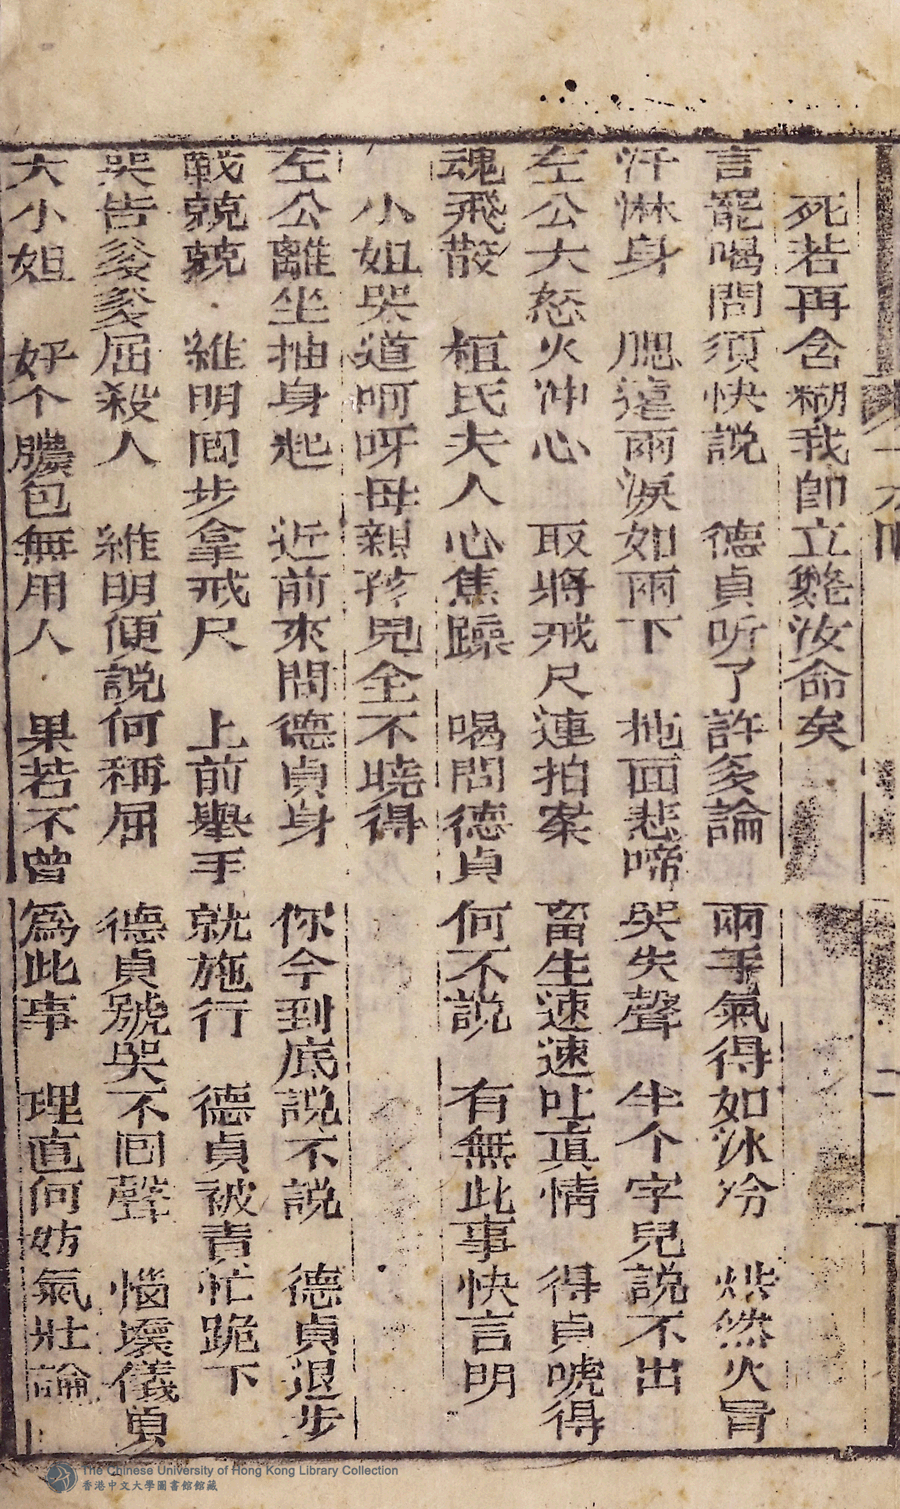 死若再含糊我即立斃汝命矣
言罷喝問須快説　德貞听了許多論　兩手氣得如冰冷　烘然火冒
汗淋身　腮邊兩淚如雨下　拋面悲啼哭失聲　半个字兒説不出
左公大怒火冲心　取將戒尺連拍案　畜生速速吐眞情　得貞唬得
魂飛散　桓氏夫人心焦躁　喝問德貞何不説　有無此事快言明
小姐哭道呵呀母親孩兒全不曉得
左公離坐抽身起　近前來問德貞身　你今到底説不説　德貞退步
戰兢兢　維明囬步拿戒尺　上前舉手就施行　德貞被責忙跪下
哭告爹爹屈殺人　維明便説何稱屈　德貞號哭不囬聲　惱壞儀貞
大小姐　好个膿包無用人　果若不曾爲此事　理直何妨氣壯論
二
The Chinese University of Hong Kong Library Collection
香港中文大學圖書館館藏